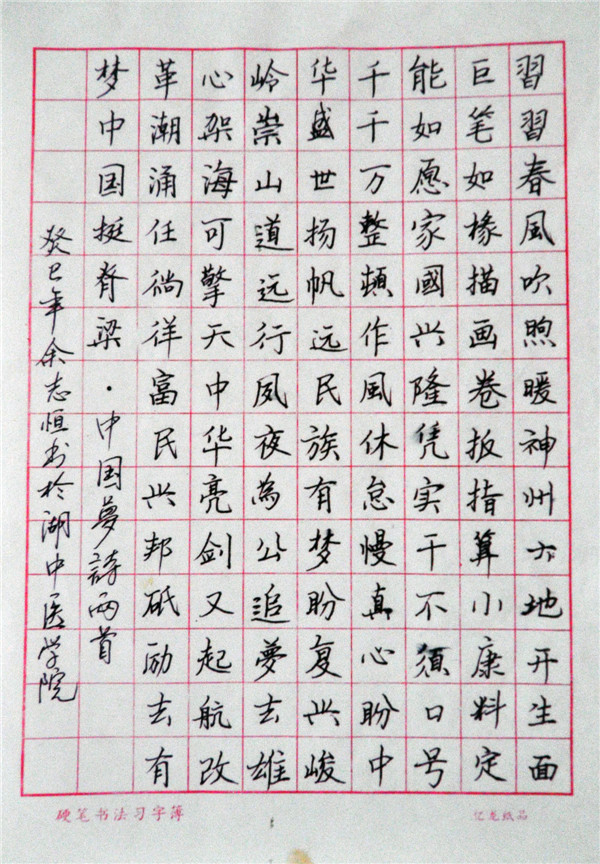 習習春風吹煦暖神州大地开生面
巨笔如椽描画卷扳指算小康料定
能如愿家國兴隆凭实干不須口号
千千万整頓作風休怠慢真心盼中
华盛世扬帆远民族有梦盼复兴峻
岭崇山道远行夙夜為公追夢去雄
心架海可擎天中华亮剑又起航改
革潮涌任徜徉富民兴邦砥励去有
梦中国挺脊梁·中国夢詩两首
癸巳年余志恒书於湖中医学院
硬笔书法习字簿
亿龙纸品